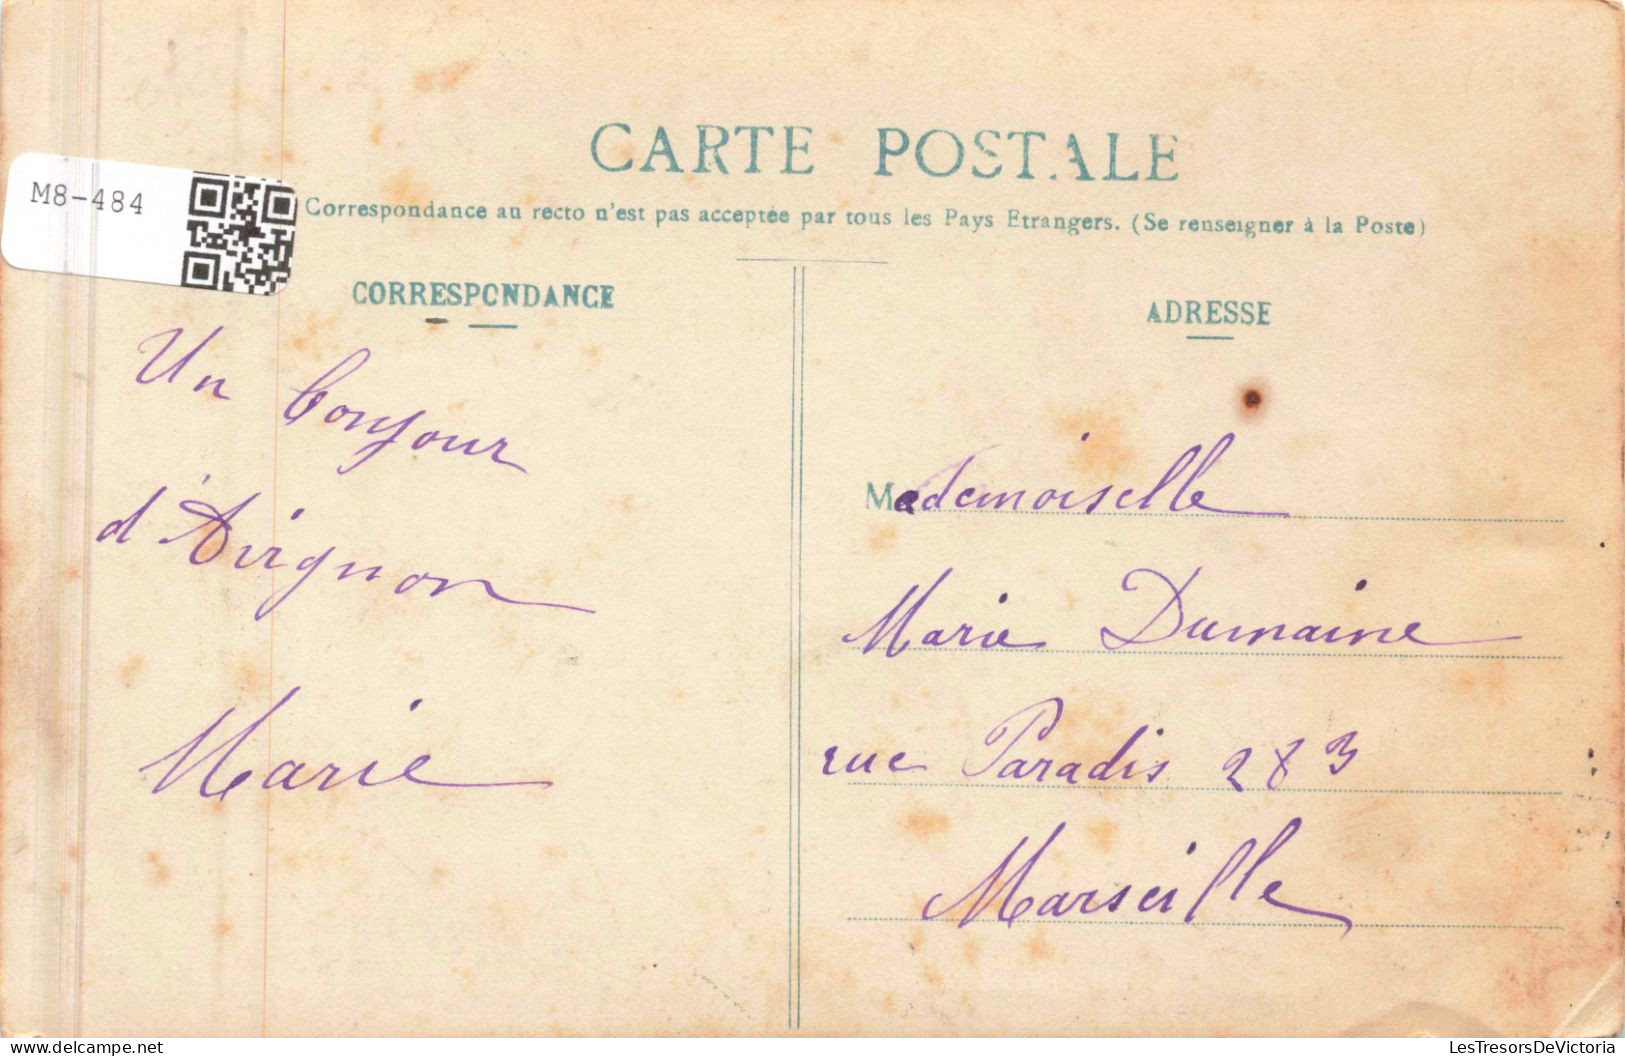 CARTE POSTALE
M8-484
Correspondance au recto n'est pas acceptée par tous les Pays Etrangers. (Se renseigner à la Poste)
CORRESPONDANCE
Un bonjour
d'Avignon
Marie
ADRESSE
Mademoiselle
Marie Dumaine
rue Paradis 283
Marseille
LesTresorsDeVictoria